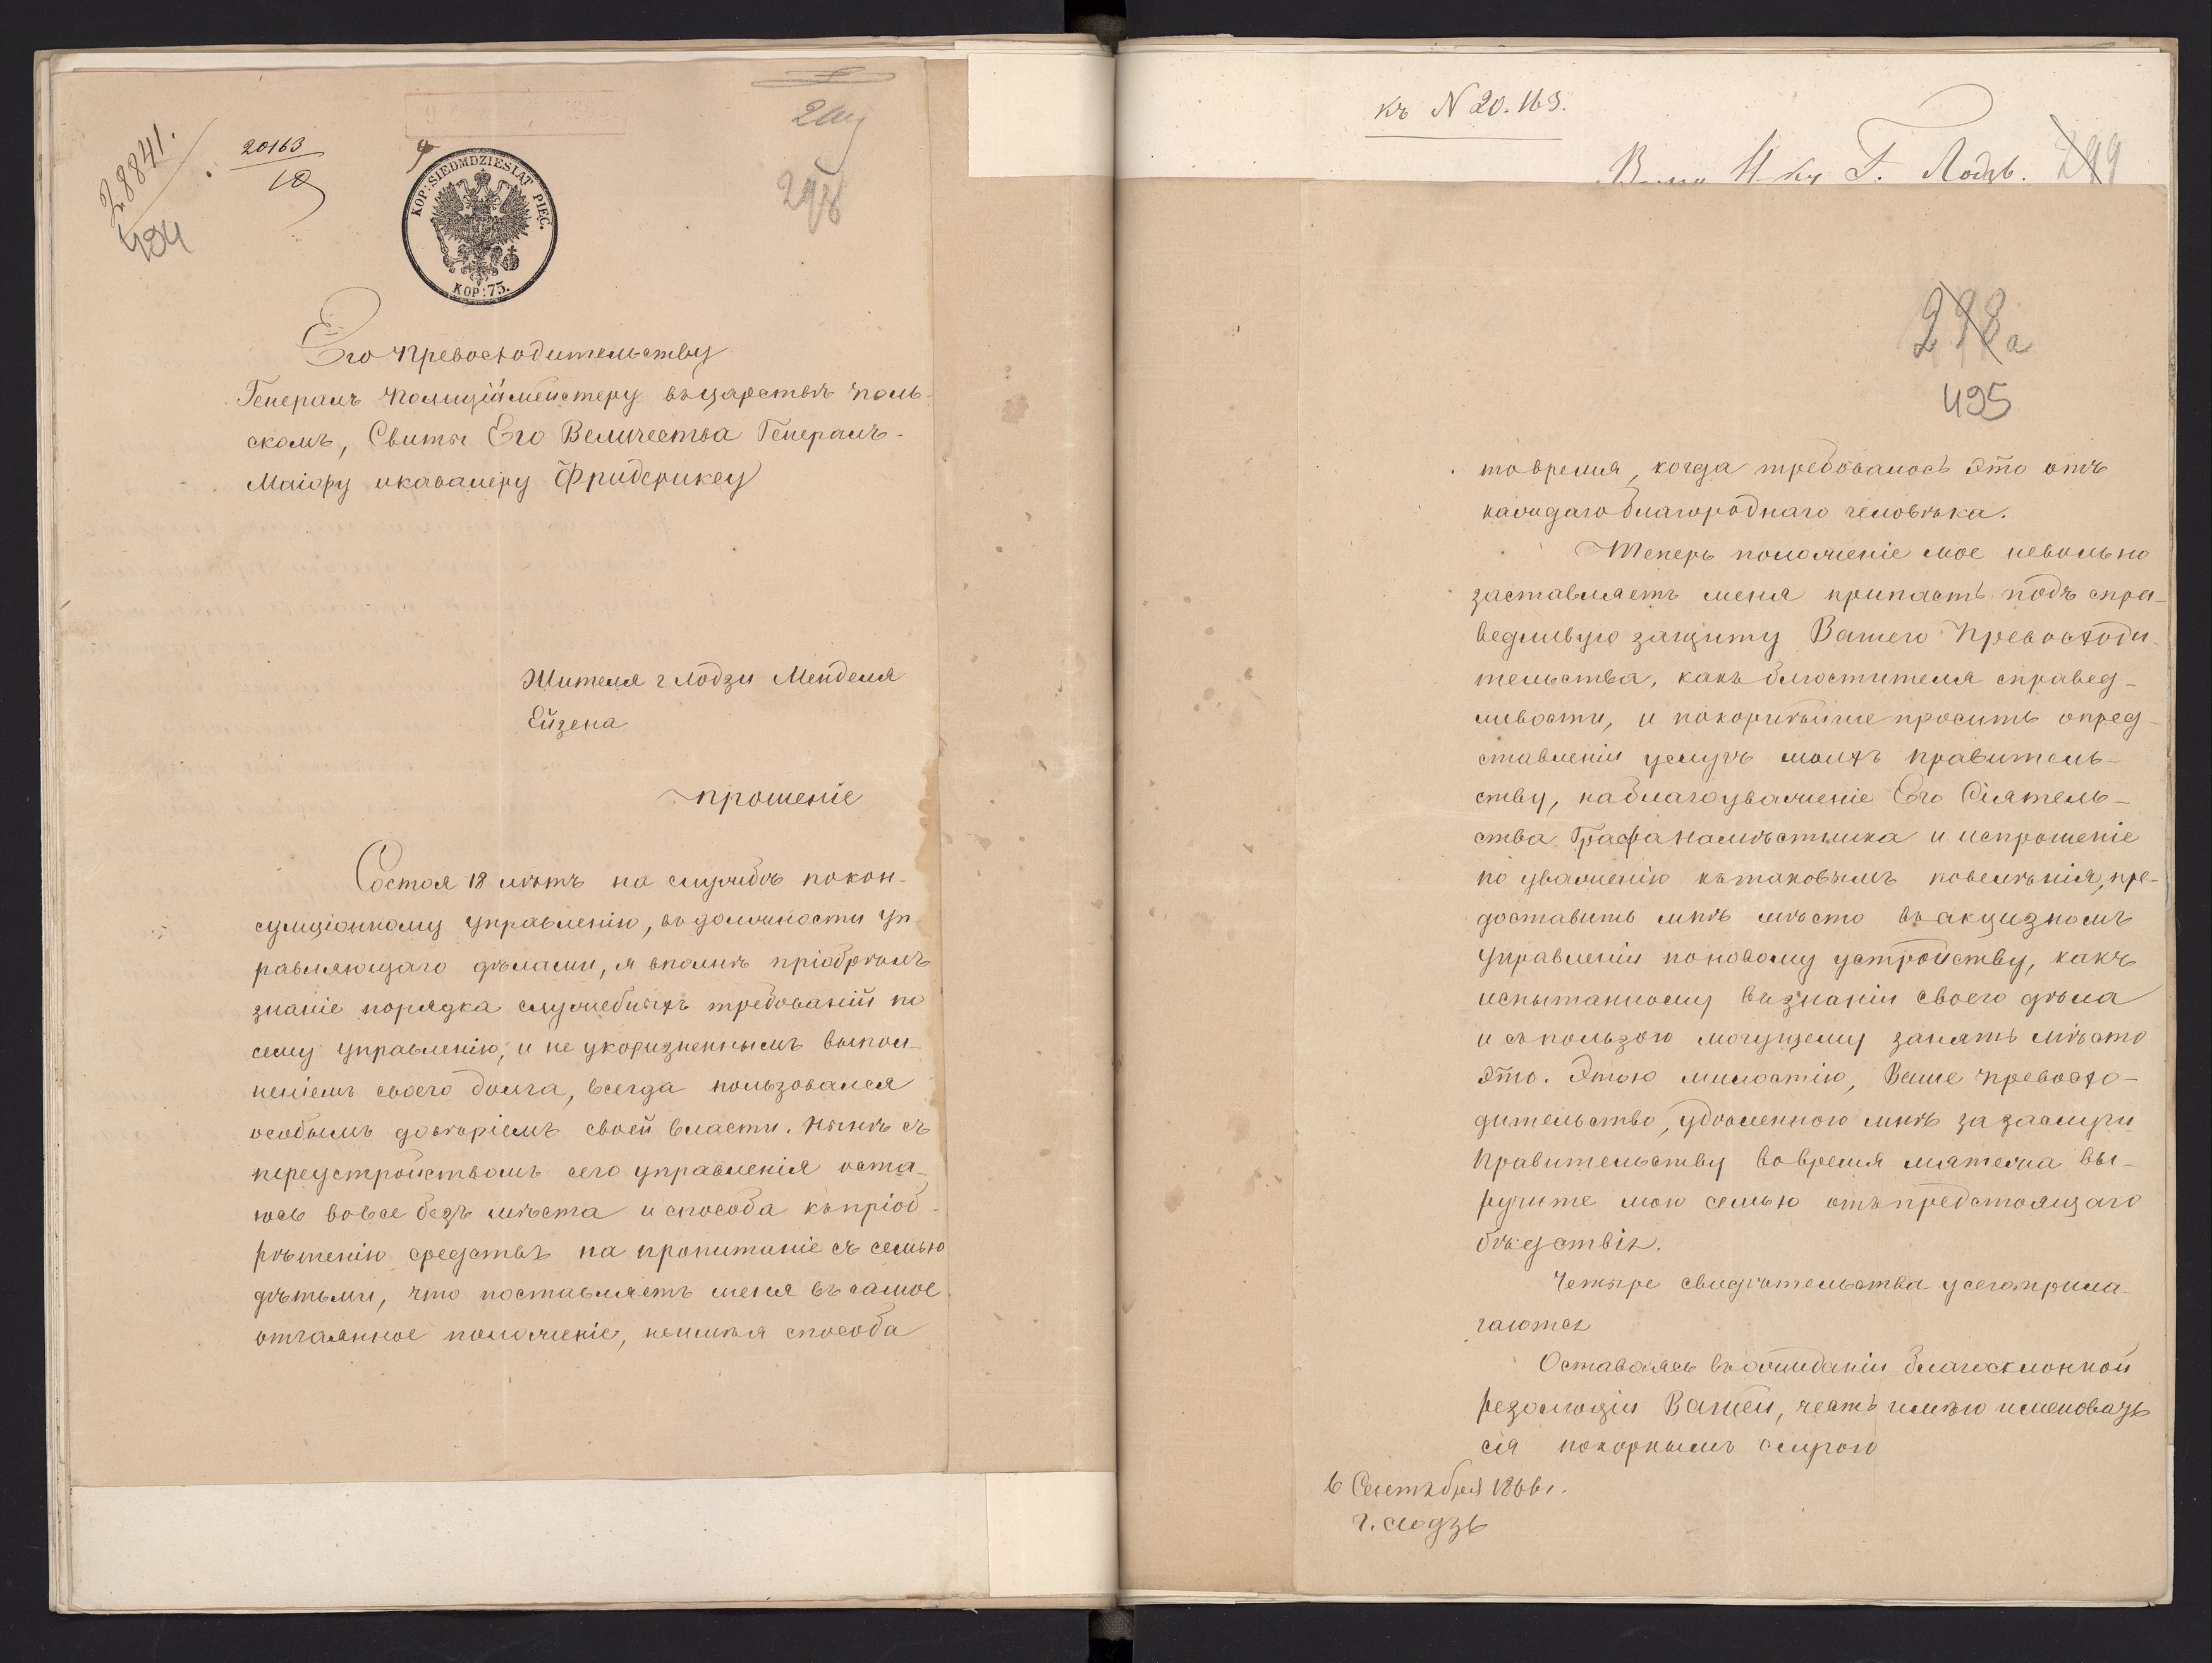 28841.
494
20163
10
298
KOP: SIEDMDZIESIĄT PIĘĆ.
KOP: 75.
Его Превосходительству
Генералъ Полиційместеру въ царствѣ Поль-
скомъ, Свиты Его Величества Генералъ-
Маіору и кавалеру Фридериксу
Жителя г Лодзи Менделя
Ейзена
Прошеніе
Состоя 18 лѣтъ на службѣ по кон-
сумціонному управленію, въ должности Уп
равляющаго дѣлами, я вполнѣ пріобрѣлъ
знаніе порядка служебныхъ требованій по
сему управленію, и не укоризненнымъ выпол-
неніемъ своего долга, всегда пользовался
особымъ довѣріемъ своей власти. Нынѣ съ
переустройствомъ сего управленія оста-
юсь вовсе безъ мѣста и способа къ пріоб-
рѣтенію средствъ на пропитаніе съ семью
дѣтьми, что поставляетъ меня въ самое
отчаянное положеніе, неимѣя способа
къ N 20.163.
Г. Лодзь.
299
298а
495
то время, когда требовалось это отъ
каждаго благороднаго человѣка.
Теперь положеніе мое невольно
заставляетъ меня припасть подъ спра-
ведливую защиту Вашего Превосходи-
тельства, какъ блюстителя справед-
ливости, и покорнѣйше просить опред-
ставленіи услугъ моихъ правитель-
ству, на благоуваженіе Его Сіятель-
ства Графа Намѣстника и испрошеніе
по уваженію къ таковымъ повелѣнія, пре-
доставить мнѣ мѣсто въ акцизномъ
Управленіи по новому устройству, какъ
испытанному въ знаніи своего дѣла
и съ пользою могущему занять мѣсто
это. Этою милостію, Ваше Превосхо-
дительство, удѣленною мнѣ за заслуги
Правительству во время мятежа вы-
ручите мою семью отъ предстоящаго
бѣдствія.
Четыре свидѣтельства у сего прила-
гаются
Оставаясь въ ожиданіи благосклонной
резолюціи Вашей, честь имѣю именовать
ся покорнымъ слугою
6 Сентября 1866 г.
г. Лодзь